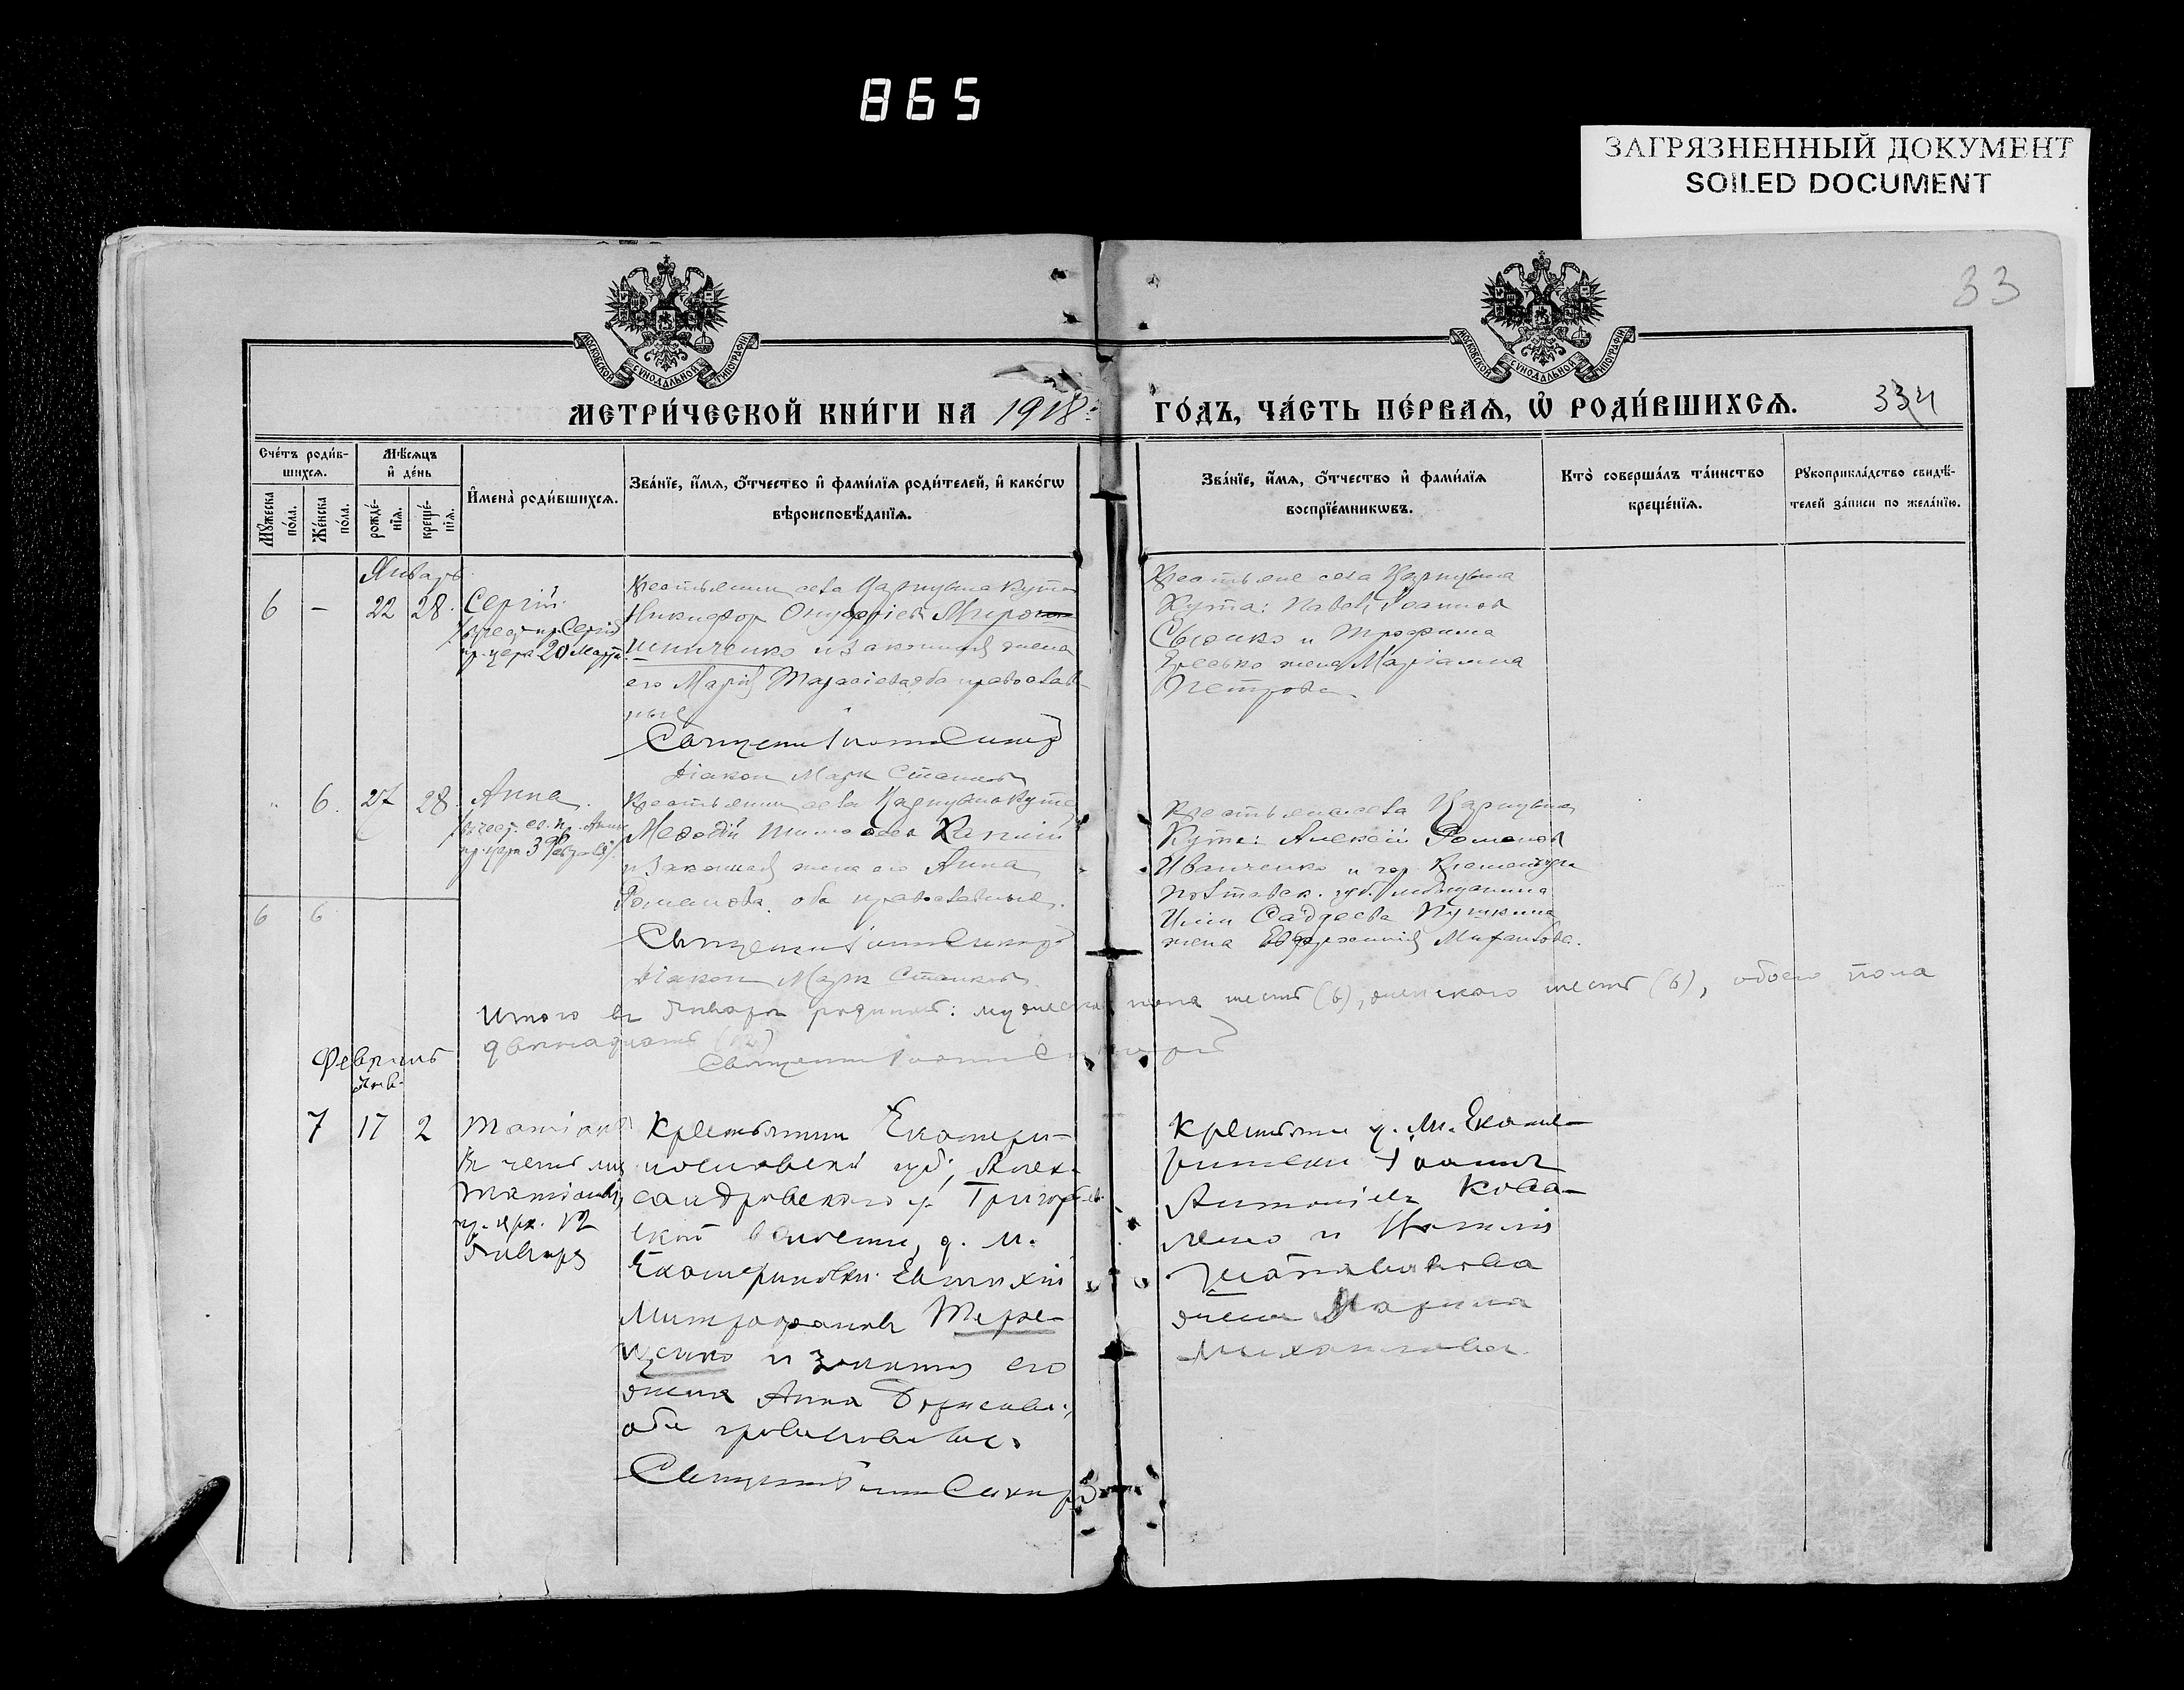 865
ЗАГРЯЗНЕННЫЙ ДОКУМЕНТ
SOILED DOCUMENT
33
МОСКОВСКОЙ СѴНОДАЛЬНОЙ ТИПОГРАФІИ
МОСКОВСКОЙ СѴНОДАЛЬНОЙ ТИПОГРАФІИ
МЕТРИ́ЧЕСКОЙ КНИ́ГИ НА 1918
ГО́ДЪ, ЧА́СТЬ ПЕ́РВАѦ, Ѽ РОДИ́ВШИХСѦ.
334
Сче́тъ роди́в-
шихсѧ.
Мѣ́сѧцъ
и҆ де́нь
Мꙋ́жеска
по́ла.
Же́нска
по́ла.
рожде́-
нїѧ.
креще́-
нїѧ.
И҆мена̀ роди́вшихсѧ.
Зва́нїе, и҆́мѧ, ѻ҆́тчество и҆ фами́лїѧ роди́телей, и҆ како́гѡ
вѣроисповѣ́данїѧ.
Зва́нїе, и҆́мѧ, ѻ҆́тчество и҆ фами́лїѧ
воспрїе́мникѡвъ.
Кто̀ соверша́лъ та́инство
креще́нїѧ.
Рꙋкоприкла́дство свидѣ́-
телей за́писи по жела́нїю.
Январь
6 - 22 28. Сергій
пр. церк. 20 Марта
Крестьянин села Царицына Кута
Никифор Онуфріев Миро
шниченко и законная жена
его Марія Тарасіева, оба православ
ные
Священник Іоанн
Діакон Марк
Крестьяне села Царицына
Кута: Павел Іоаннов
и Трофима
жена Маріанна
Петрова
6. 27 28. Анна.
пр. церк 3 Февраля
Крестьянин села Царицына Кута
Меѳодій Тимоѳеев
и законная жена его Анна
Романова, оба православные.
Священник Іоанн
Діакон Марк
Крестьяне села Царицына
Кута: Алексій Романов
Иванченко и гор. Кременчуга
Полтавск. губ. мещанина
Пушкина
жена Евфросинія Михаилова.
6 6
Итого в Январе родилось: мужеска пола шесть (6), женского шесть (6), обоего пола
двенадцать (12)
Священник Іоанн
Февраль
Янв.
7 17 2 Татіана
В честь мц
Татіаны
пр. црк. 12
Января
Крестьянин Екатери-
нославской губ., Алек-
сандровского у. Григорьев-
ской волости, д. М.
Екатериновки Евтихій
Митрофанов Тере-
щенко и законная его
жена Анна Борисова,
оба православные.
Священник Іоанн
Крестьяне д. М. Екате-
риновки Іоанн
Антоніев Кова-
ленко и
жена Марина
Михаилова.